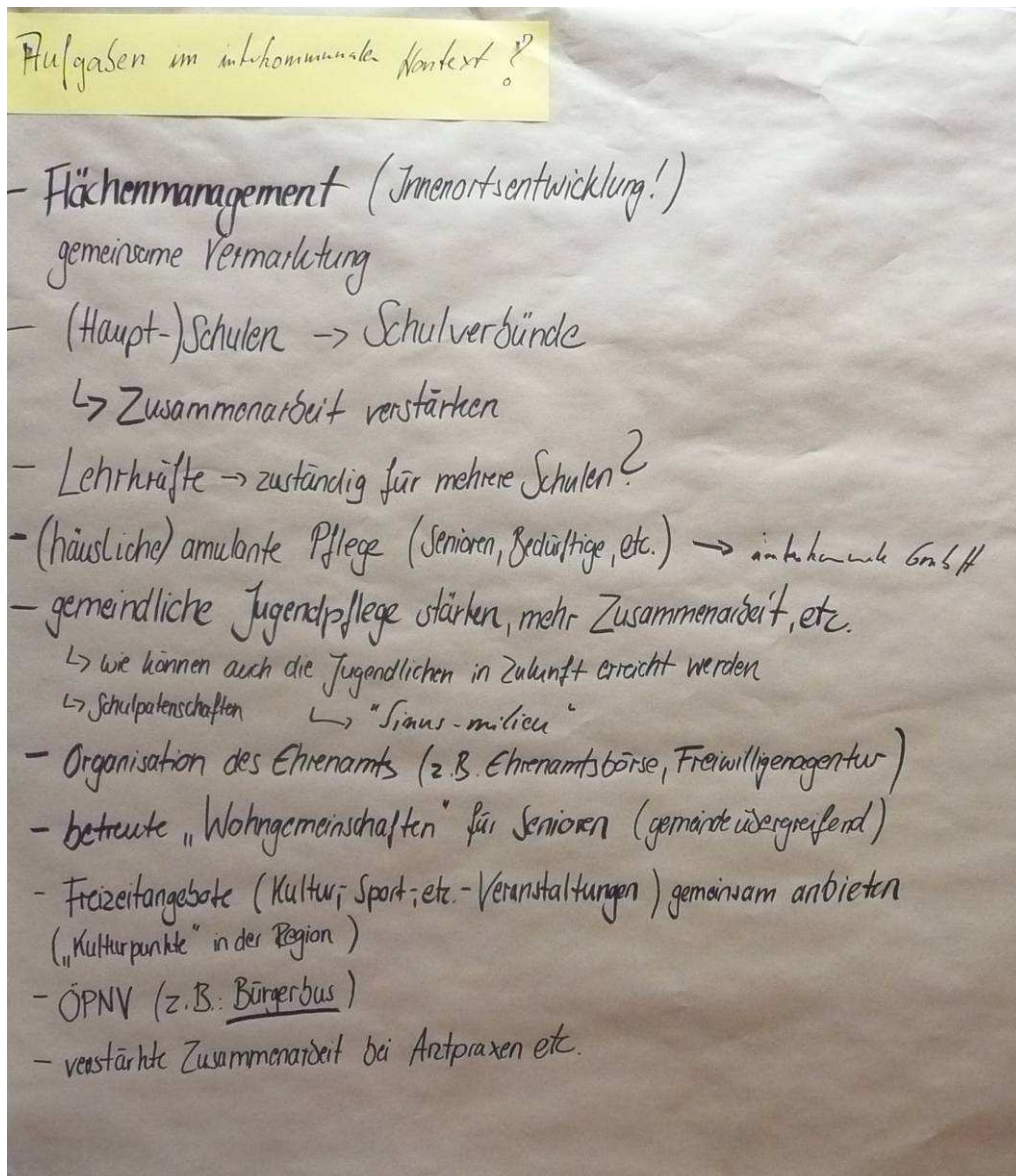 Aufgaben im interkommunalen Kontext ?
- Flächenmanagement (Innenortsentwicklung!)
gemeinsame Vermarktung
- (Haupt-)Schulen -> Schulverbünde
↳ Zusammenarbeit verstärken
- Lehrkräfte -> zuständig für mehrere Schulen?
- (häusliche) amulante Pflege (Senioren, Bedürftige, etc.) -> interkommunale GmbH
- gemeindliche Jugendpflege stärken, mehr Zusammenarbeit, etc.
↳ wie können auch die Jugendlichen in Zukunft erreicht werden
↳ Schulpatenschaften ↳ "Sinus-milieu"
- Organisation des Ehrenamts (z.B. Ehrenamtsbörse, Freiwilligenagentur)
- betreute „Wohngemeinschaften" für Senioren (gemeindeübergreifend)
- Freizeitangebote (Kultur-, Sport-, etc.-Veranstaltungen) gemeinsam anbieten
(„Kulturpunkte" in der Region)
- ÖPNV (z.B.: Bürgerbus)
- verstärkte Zusammenarbeit bei Arztpraxen etc.